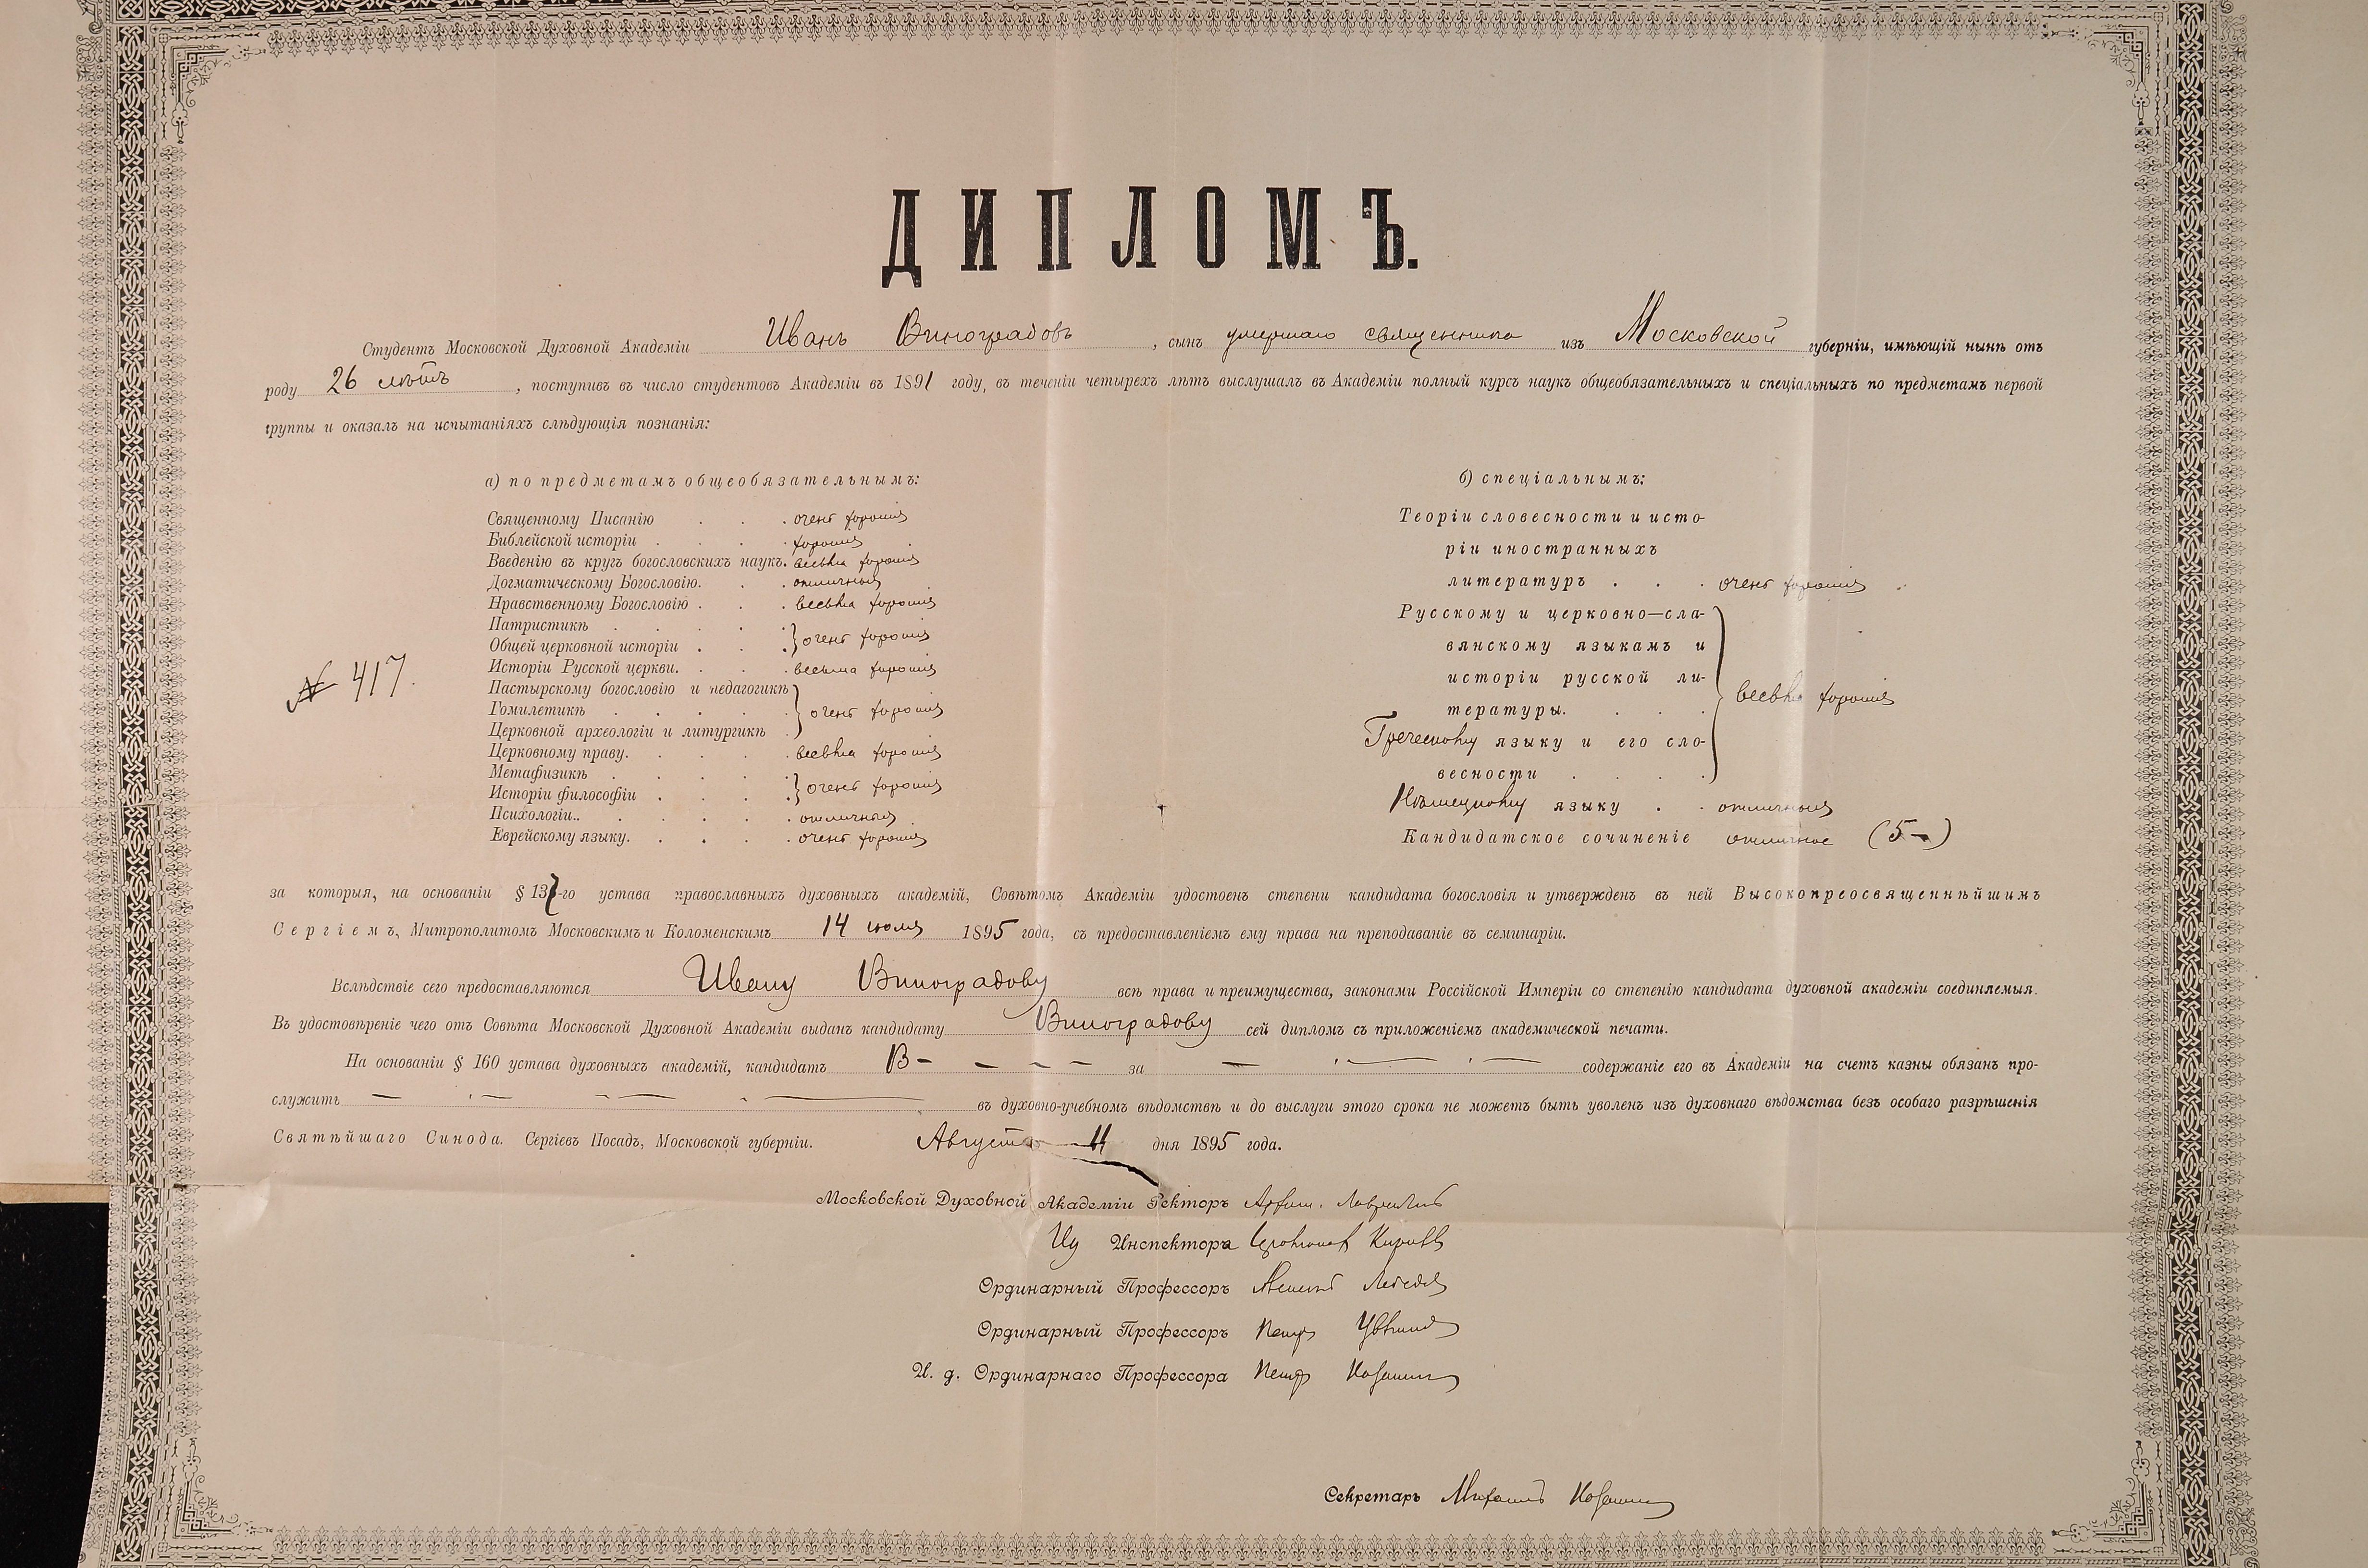 ДИПЛОМЪ.
Студентъ Московской Духовной Академіи Иванъ Виноградовъ, сынъ умершаго священника изъ Московской губерніи, имѣющій нынѣ отъ
роду 26 лѣтъ, поступивъ въ число студентовъ Академіи въ 1891 году, въ теченіи четырехъ лѣтъ выслушалъ въ Академіи полный курсъ наукъ общеобязательныхъ и спеціальныхъ по предметамъ первой
группы и оказалъ на испытаніяхъ слѣдующія познанія:
а) по предметамъ общеобязательнымъ:
Священному Писанію . . . очень хорошія
Библейской исторіи . . . хорошія
Введенію въ кругъ богословскихъ наукъ. весьма хорошія
Догматическому Богословію. . . отличныя
Нравственному Богословію . . . весьма хорошія
Патристикѣ . . . .
Общей церковной исторіи . . . очень хорошія
Исторіи Русской церкви. . . весьма хорошія
Пастырскому богословію и педагогикѣ
Гомилетикѣ . . . . очень хорошія
Церковной археологіи и литургикѣ .
Церковному праву. . . . весьма хорошія
Метафизикѣ . . . . .
Исторіи философіи . . . . очень хорошія
Психологіи.. . . . . отличныя
Еврейскому языку. . . . . очень хорошія
№ 417.
б) спеціальнымъ:
Теоріи словесности и исто-
ріи иностранныхъ
литературъ . . . очень хорошія
Русскому и церковно—сла-
вянскому языкамъ и
исторіи русской ли-
тературы. . . . весьма хорошія
Греческому языку и его сло-
весности . . . .
Нѣмецкому языку . . отличныя
Кандидатское сочиненіе отличное (5–)
за которыя, на основаніи § 137-го устава православныхъ духовныхъ академій, Совѣтомъ Академіи удостоенъ степени кандидата богословія и утвержденъ въ ней Высокопреосвященнѣйшимъ
Сергіемъ, Митрополитомъ Московскимъ и Коломенскимъ 14 іюля 1895 года, съ предоставленіемъ ему права на преподаваніе въ семинаріи.
Вслѣдствіе сего предоставляются Ивану Виноградову всѣ права и преимущества, законами Россійской Имперіи со степенію кандидата духовной академіи соединяемыя.
Въ удостовѣреніе чего отъ Совѣта Московской Духовной Академіи выданъ кандидату Виноградову сей дипломъ съ приложеніемъ академической печати.
На основаніи § 160 устава духовныхъ академій, кандидатъ В – – – – за – – – содержаніе его въ Академіи на счетъ казны обязанъ про-
служить – – – – въ духовно-учебномъ вѣдомствѣ и до выслуги этого срока не можетъ быть уволенъ изъ духовнаго вѣдомства безъ особаго разрѣшенія
Святѣйшаго Синода. Сергіевъ Посадъ, Московской губерніи. Августа 11 дня 1895 года.
Московской Духовной Академіи Ректоръ Архим. Лаврентій
Ид Инспектора Іеромонах Кириллъ
Ординарный Профессоръ Алексѣй Лебедевъ
Ординарный Профессоръ Петръ Цвѣтковъ
И. д. Ординарнаго Профессора Петръ Казанскій
Секретарь Михаилъ Казанскій